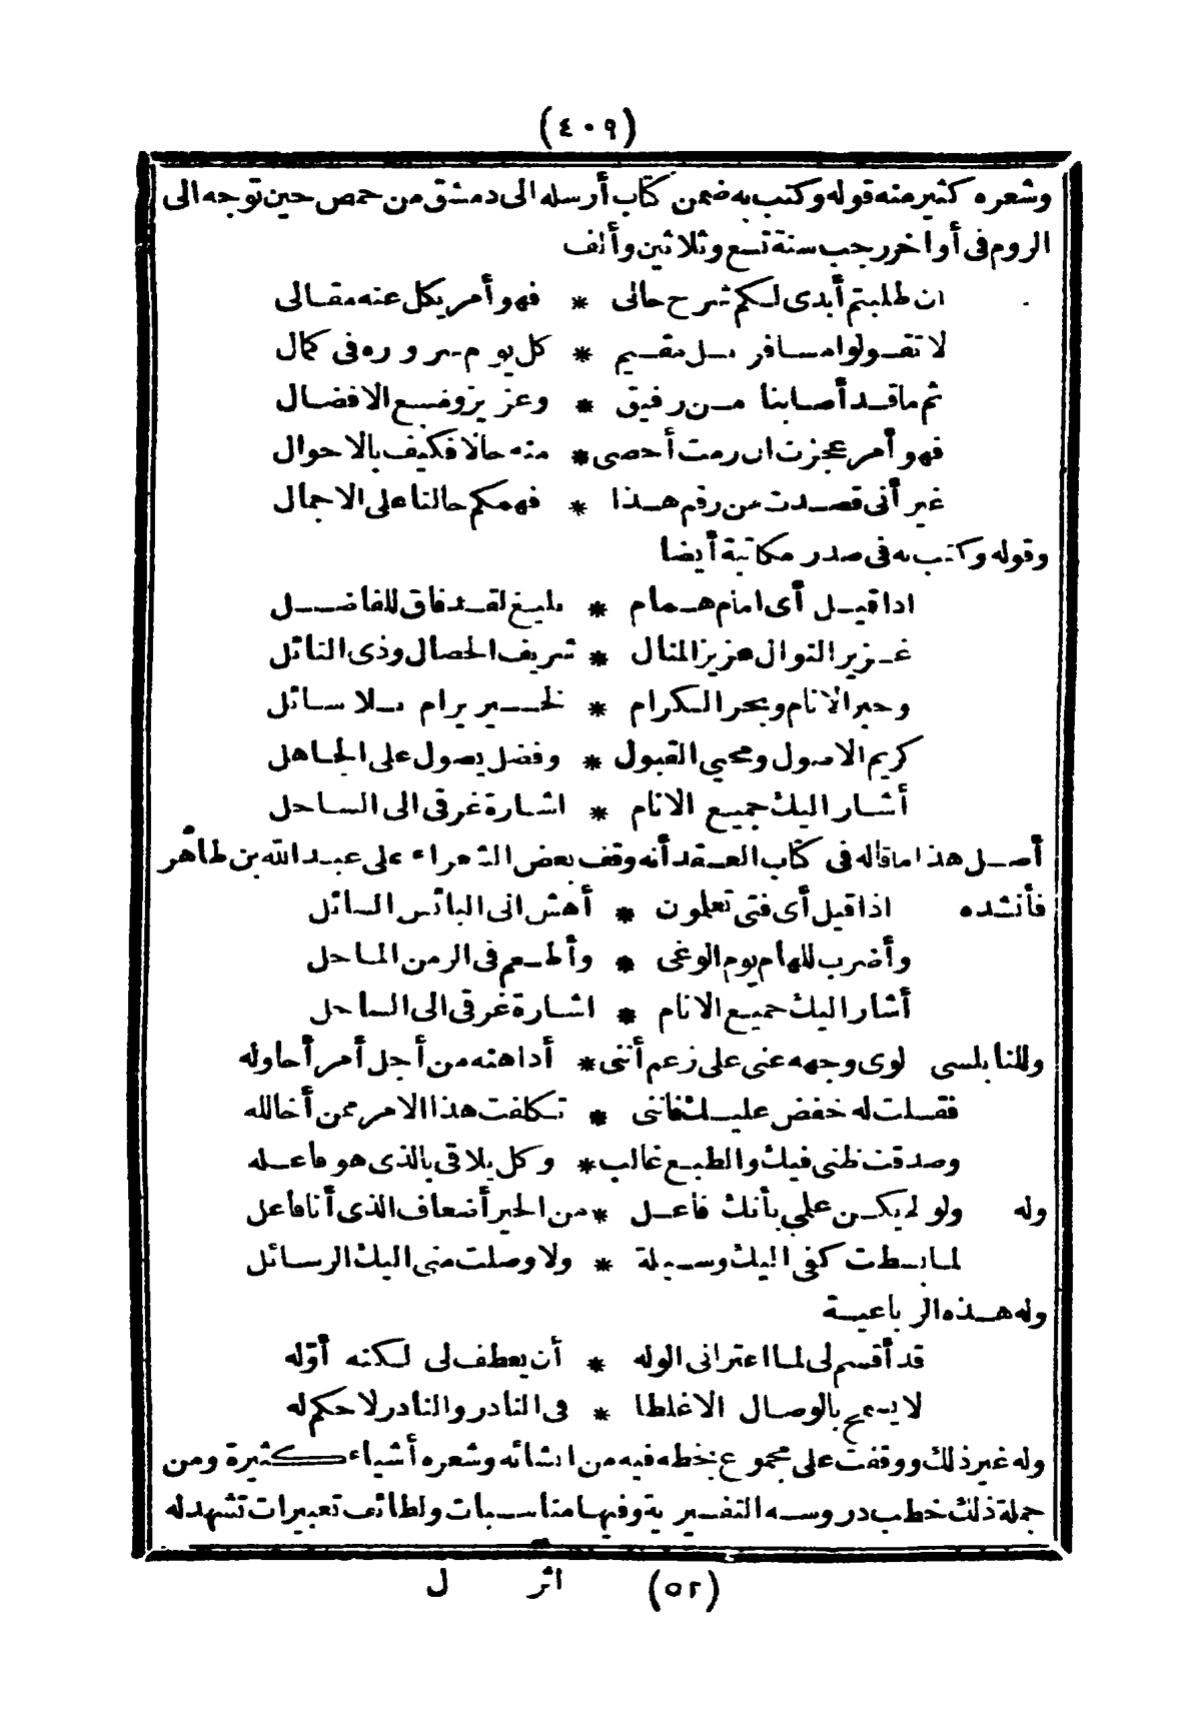 (٤٠٩)
وشعره كثير منه قوله وكتب به ضمن كتاب أرسله الى دمشق من حمص حين توجه الى
الروم فى أواخر رجب سنة تسع وثلاثين وألف
ان طلبتم أبدى لكم شرح حالى * فهو أمر يكل عنه مقالى
لا تقولوا مسافر بل مقيم * كل يوم مروره فى كمال
ثم ما قد أصابنا من رفيق * وعزيز وضيع الافضال
فهو أمر عجزت ان رمت أحصى * منه حالا فكيف بالاحوال
غير أنى قصدت من رقم هذا * فهمكم حالنا على الاجمال
وقوله وكتب به فى صدر مكاتبة أيضا
اذا قيل أى امام همام * بليغ لقد فاق للفاضل
غزير النوال عزيز المنال * شريف الخصال وذى النائل
وحبر الانام وبحر الكرام * لخير يرام بلا سائل
كريم الاصول ومحيي القبول * وفضل يصول على الجاهل
أشار اليك جميع الانام * اشارة غرقى الى الساحل
أصل هذا ما قاله فى كتاب العقد أنه وقف بعض الشعراء على عبد الله بن طاهر
فأنشده اذا قيل أى فتى تعلمون * أهش الى البائس السائل
وأضرب للهام يوم الوغى * وأطعم فى الزمن الماحل
أشار اليك جميع الانام * اشارة غرقى الى الساحل
وللنابلسى لوى وجهه عنى على زعم أننى * أداهنه من أجل أمر أحاوله
فقلت له خفض عليك فاننى * تكلفت هذا الامر ممن أخالله
وصدقت ظنى فيك والطبع غالب * وكل يلاقى بالذى هو فاعله
وله ولو لم يكن علمي بأنك فاعل * من الخير أضعاف الذى أنا فاعل
لما بسطت كفى اليك وسيلة * ولا وصلت منى اليك الرسائل
وله هذه الرباعية
قد أقسم لى لما اعترانى الوله * أن يعطف لى لكنه أوّله
لا يسمح بالوصال الا غلطا * فى النادر والنادر لا حكم له
وله غير ذلك ووقفت على مجموع بخطه فيه من انشائه وشعره أشياء كثيرة ومن
جملة ذلك خطب دروسه التفسيرية وفيها مناسبات ولطائف تعبيرات تشهد له
(٥٢) اثر ل